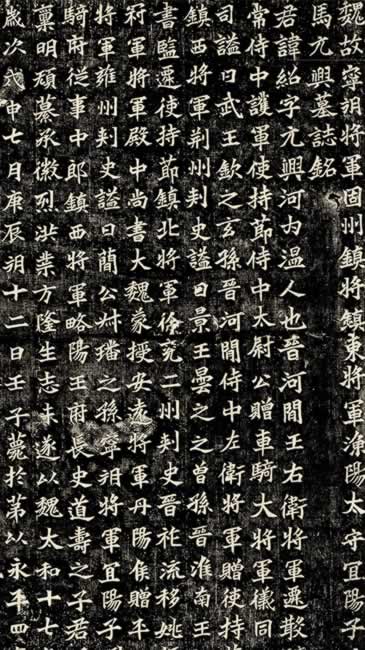 魏故寧朔將軍固州鎮將鎮東將軍漁陽太守宜陽子
馬元興墓誌銘
君諱紹字元興河內温人也晉河間王右衛將軍遷散
常侍中護軍使持節侍中太尉公贈車騎大將軍儀同
司謚曰武王欽之玄孫晉河間侍中左衛將軍贈使持
鎮西將軍荆州刾史謚曰景王曇之之曾孫晉淮南王
書監遷使持節鎮北將軍徐兗二州刾史晉祚流移姚
冠軍將軍殿中尚書大魏蒙授安遠將軍丹陽侯贈平
將軍雍州刾史謚曰簡公叔璠之孫寧朔將軍宜陽子
騎府從事中郎鎮西將軍略陽王府長史道壽之子君
稟明頑纂承徽烈洪業方隆生志未遂以魏太和十七
歲次戊申七月庚辰朔十二日壬子薨於第以永平四